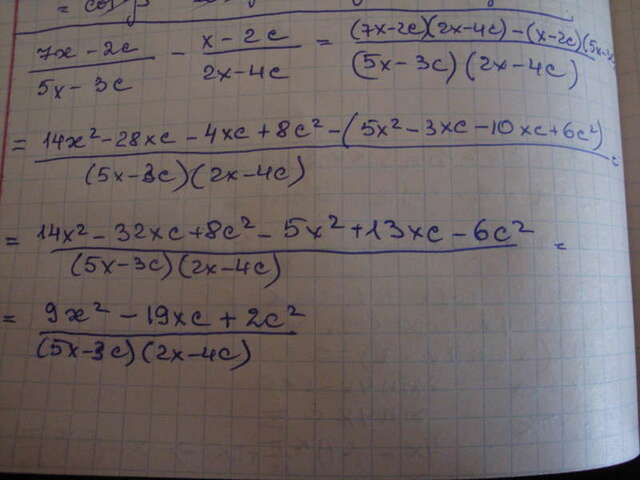 = cos β
(7x-2c)/(5x-3c) - (x-2c)/(2x-4c) = ((7x-2c)(2x-4c)-(x-2c)(5x-3c))/((5x-3c)(2x-4c))
= (14x²-28xc-4xc+8c²-(5x²-3xc-10xc+6c²))/((5x-3c)(2x-4c)) =
= (14x²-32xc+8c²-5x²+13xc-6c²)/((5x-3c)(2x-4c)) =
= (9x²-19xc+2c²)/((5x-3c)(2x-4c))